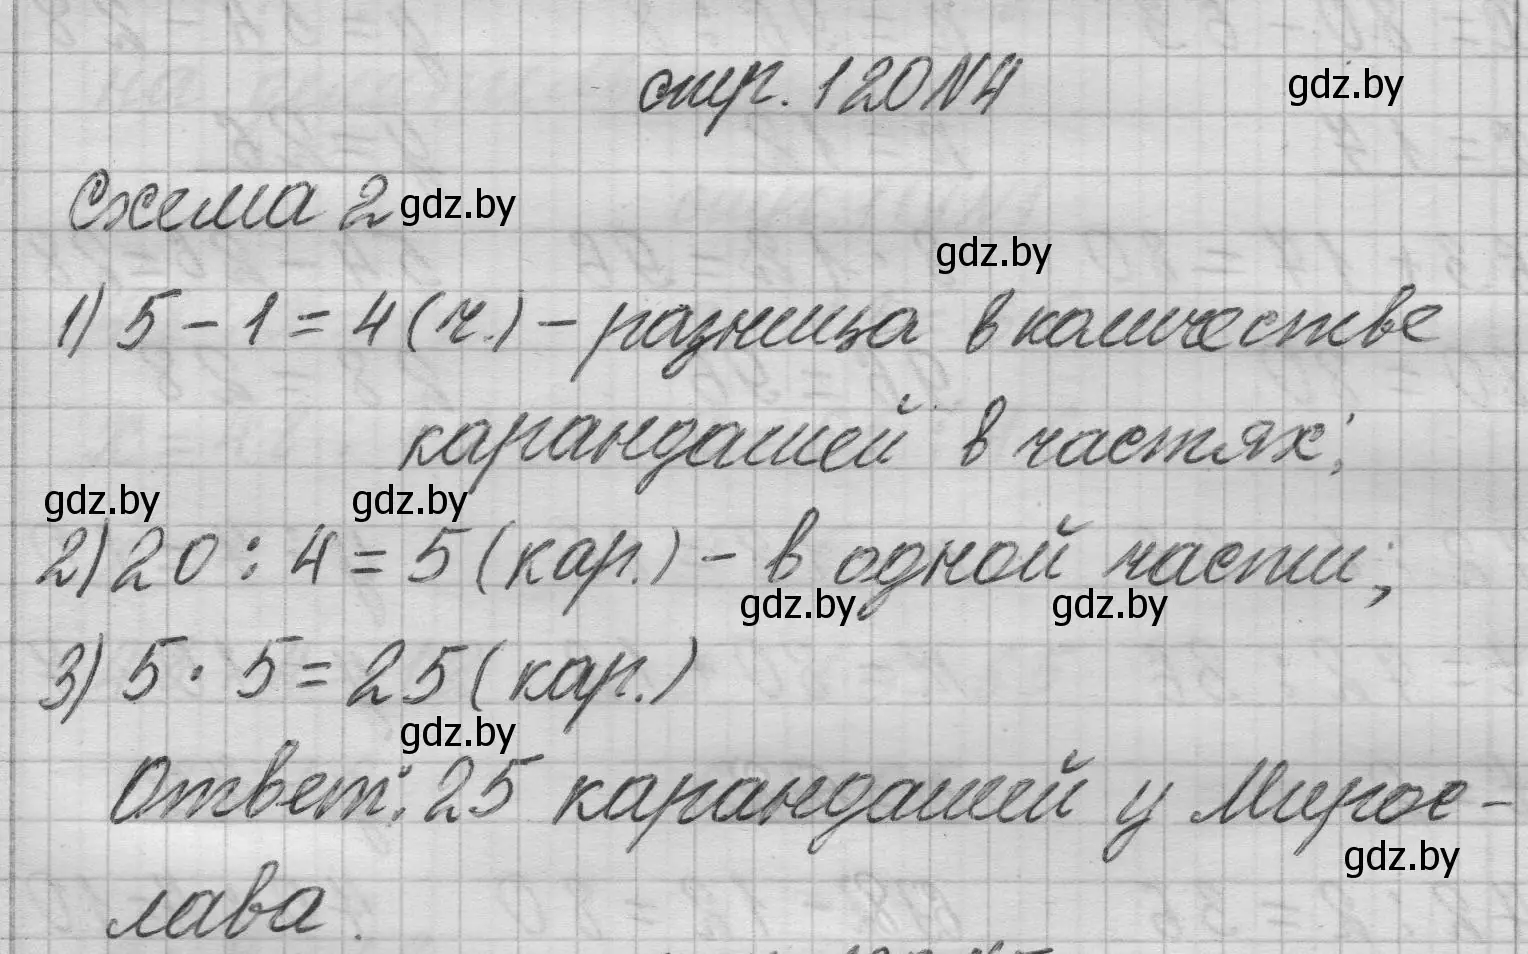 стр. 120 N4 gdz.by
Схема 2 gdz.by
gdz.by
1) 5 - 1 = 4 (ч.) - разница в количестве
карандашей в частях;
gdz.by gdz.by
2) 20 : 4 = 5 (кар.) - в одной части;
gdz.by gdz.by
3) 5 · 5 = 25 (кар.)
gdz.by
Ответ: 25 карандашей у Мирос-
gdz.by
лава.